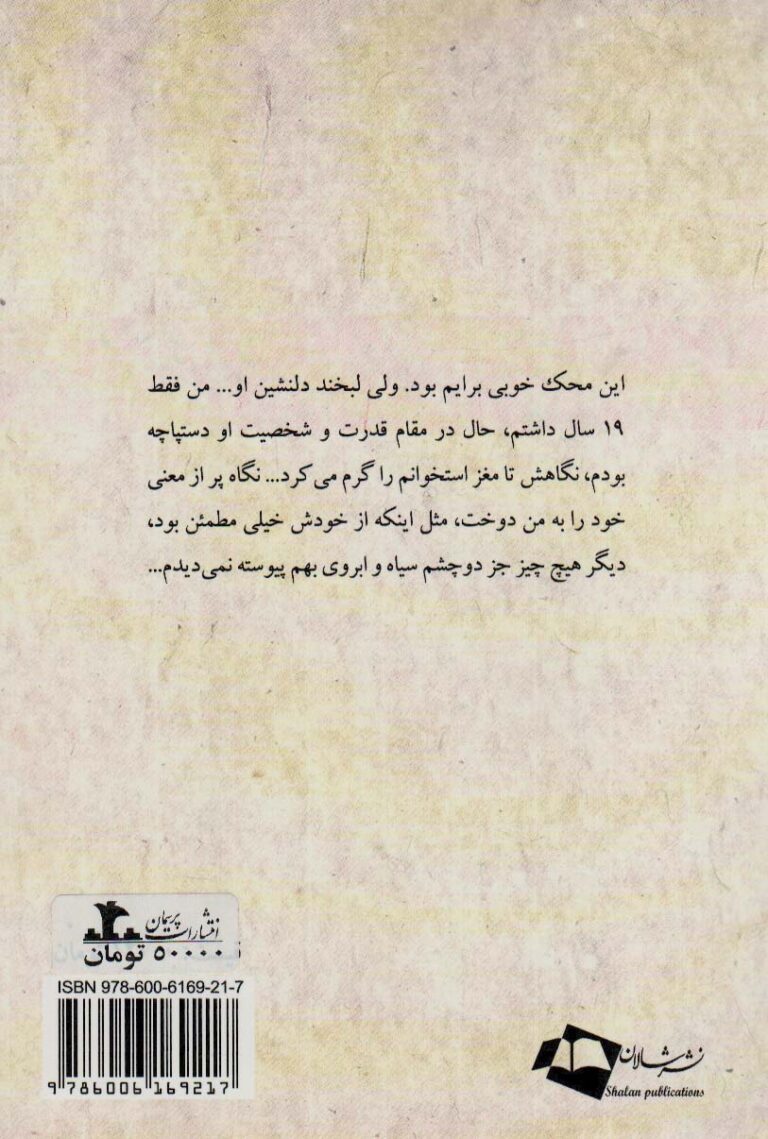 این محک خوبی برایم بود. ولی لبخند دلنشین او... من فقط
۱۹ سال داشتم، حال در مقام قدرت و شخصیت او دستپاچه
بودم، نگاهش تا مغز استخوانم را گرم می‌کرد... نگاه پر از معنی
خود را به من دوخت، مثل اینکه از خودش خیلی مطمئن بود،
دیگر هیچ چیز جز دوچشم سیاه و ابروی بهم پیوسته نمی‌دیدم...
انتشارات پریمان
۵۰۰۰۰ تومان
ISBN 978-600-6169-21-7
9 786006 169217
نشر شالان
Shalan publications